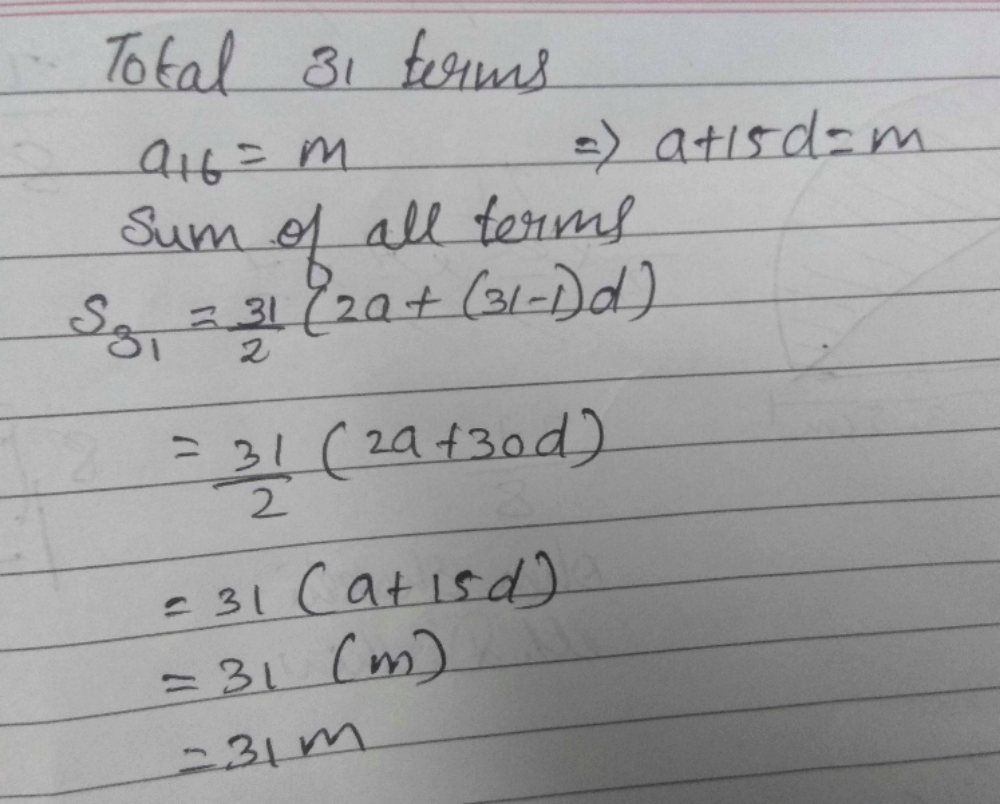 Total 31 terms
a₁₆ = m ⇒ a+15d = m
Sum of all terms
S₃₁ = 31/2 (2a + (31-1)d)
= 31/2 (2a + 30d)
= 31 (a + 15d)
= 31 (m)
= 31 m